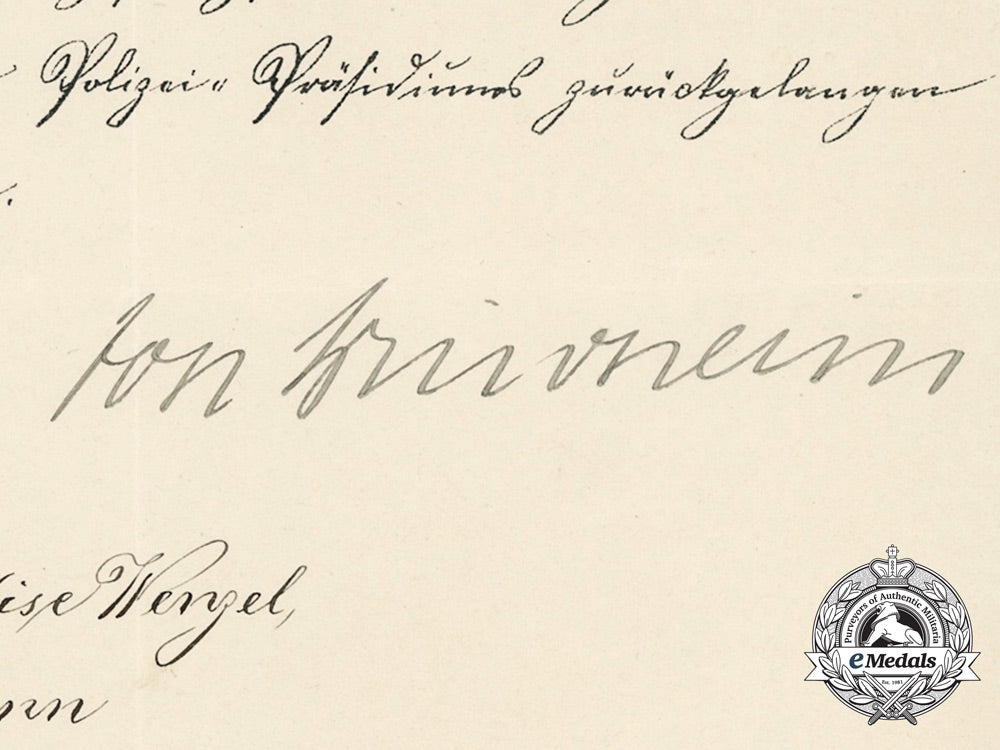 Polizei-Präsidiums zurückgelangen
von
ise Wenzel,
nn
Purveyors of Authentic Militaria
eMedals
Est. 1981